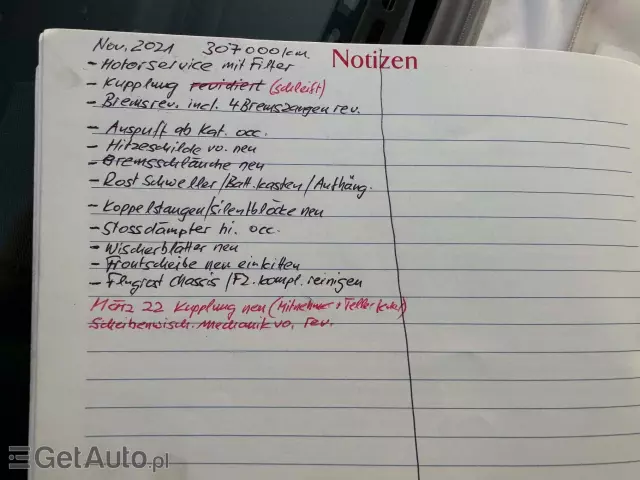 Nov. 2021 307000km.
Notizen
- Motorservice mit Filter
- Kupplung revidiert (schleift)
- Bremsrev. incl. 4 Bremszangen rev.
- Auspuff ab Kat. occ.
- Hitzeschilde vo. neu
- Bremsschläuche neu
- Rost Schweller/Batt.kasten/Aufhäng.
- Koppelstangen/Silentblöcke neu
- Stossdämpfer hi. occ.
- Wischerblätter neu
- Frontscheibe neu einkitten
- Flugrost Chassis/Fz. kompl. reinigen
März 22 Kupplung neu (Mitnehmer + Teller
Scheibenwisch. Mechanik vo. rev.
GetAuto.pl